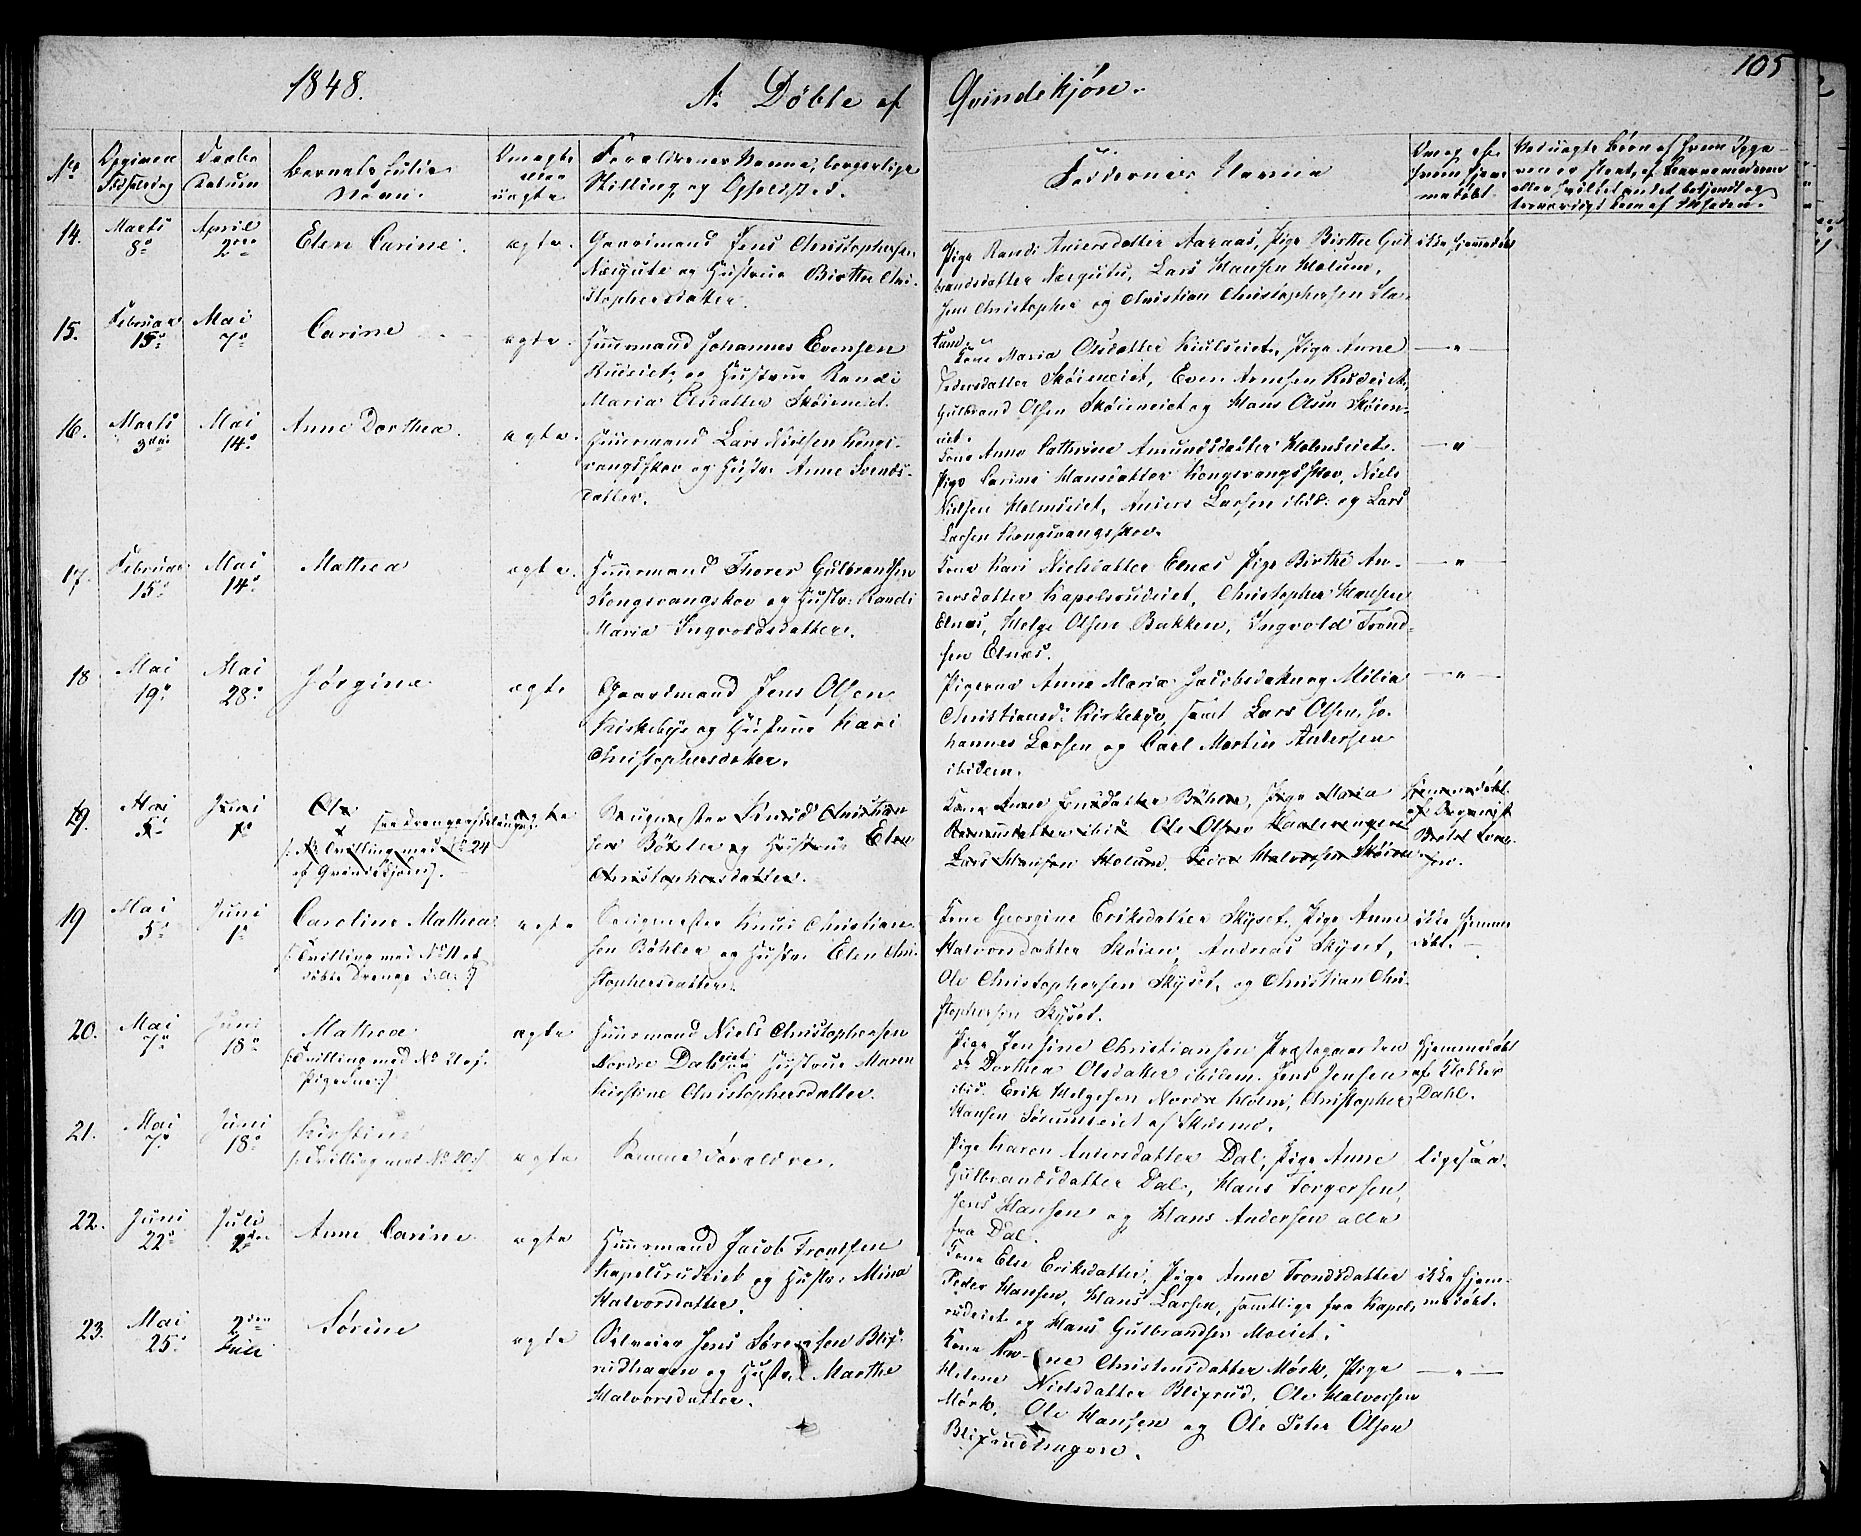 1848.
A: Døbte af Qvindekjøn.
105
No
Opgiven Fødselsdag
Daabs Datum
Barnets fulde Navn.
Om ægte eller uægte
Forældrenes Navne, borgerlige Stilling og Opholdsted.
Faddernes Navne
Om og af hvem hjemmedøbt
14.
Marts 8de
April 2den
Elen Carine.
ægte.
Gaardmand Jens Christophersen
Næsgute og Hustrue Birthe Chri-
stophersdatter.
Pige Randi Andersdatter Aaraas, Pige Birthe Gul
brandsdatter Næsgutu, Lars Hansen Holum,
Jens Christopher og Christian Christophersen Sla-
tum.
ikke hjemmedøbt
15.
Februar 15de
Mai 7de
Carine
ægte.
Huusmand Johannes Evensen
Rudeiet, og Hustrue Randi
Maria Olsdatter Skøieneiet.
Kone Maria Olsdatter Kiulseiet, Pige Anne
Pedersdatter Skøieneiet, Even Arnesen Rudeiet,
Gulbrand Olsen Skøieneiet og Hans Olsen Skøien-
eiet.
— " —
16.
Marts 3die
Mai 14de
Anne Dorthea.
ægte.
Huusmand Lars Nielsen Kongs-
vangskov og Hustr: Anne Svends-
datter.
Kone Anne Cathrine Amundsdatter Holmseiet.
Pige Carine Hansdatter Kongsvangskov, Niels
Nielsen Holmseiet, Anders Larsen ibid. og Lars
Larsen Kongsvangskov.
— " —
17.
Februar 15de
Mai 14de
Mathea
ægte.
Huusmand Thorer Gulbrandsen
Kongsvangskov og Hustr: Randi
Maria Ingvoldsdatter.
Kone Kari Nielsdatter Elnæs Pige Birthe An-
dersdatter Kapelsrudeiet, Christopher Hansen
Elnæs, Helge Olsen Bakken, Ingvold Trond-
sen Elnæs.
— " —
18
Mai 19de
Mai 28de
Jørgine
ægte
Gaardmand Jens Olsen
Kirkebye og Hustrue Kari
Christophersdatter.
Pigerne Anne Maria Jacobsdatter og Milia
Christiansd: Kirkebye, samt Lars Olsen, Jo-
hannes Larsen og Carl Martin Andersen
ibidem.
— " —
19.
Mai 5te
Juni 1ste
Ole
Tvilling med No 24
af Qvindekjønnet.
ægte
Brugmester Knud Christian
sen Bøhler og Hustrue Elen
Christophersdatter.
Kone Anne Jensdatter Bøhler, Pige Maria
Rasmusdatter ibid. Ole Olsen Haalevengeret
Lars Hansen Holum, Peder Halvorsen Skøien
Hjemmedøbt
19
Mai 5te
Juni 1ste
Caroline Mathea
/: Tvilling med No 11 af
døbte Drenge i. A. :/
ægte
Brugmester Knud Christian-
sen Bøhler og Hustr: Elen Chri-
stophersdatter.
Kone Georgine Eriksdatter Skyset, Pige Anne
Halvorsdatter Skøien, Andreas Skyset,
Ole Christophersen Skyset, og Christian Chri-
stophersen Skyset.
ikke hjemme
døbt. —
20.
Mai 7de
Juni 18de
Mathea
/: Tvilling med No 21 af
Pigerne :/
ægte
Huusmand Niels Christophersen
Nordre Dahl eiet og Hustrue Maren
Kirstine Christophersdatter.
Pige Jensine Christiansen Præstegaarden
do Dorthea Olsdatter ibidem. Jens Jensen
ibid. Erik Helgesen Nordre Holm, Christopher
Hansen Sørumseiet af Skuemo.
hjemmedøbt
af Klokker
Dahl.
21.
Mai 7de
Juni 18de
Kirstine
/: Tvilling med No 20 :/
ægte
Samme Forældre.
Pige Karen Andersdatter Dal, Pige Anne
Gulbrandsdatter Dal, Hans Torgersen,
Jens Hansen og Hans Andersen alle
fra Dal.
ligesaa.
22.
Juni 22de
Juli 2den
Anne Carine
ægte
Huusmand Jacob Trondsen
Kapelsrudeiet og Hustr: Mina
Halvorsdatter.
Kone Else Eriksdatter, Pige Anne Trondsdatter
Peder Hansen, Hans Larsen, samtlige fra Kapels
rudeiet og Hans Gulbrandsen Moeiet.
ikke hjem-
medøbt.
23.
Mai 25de
2den Juli
Sørine
ægte
Selveier Jens Sørensen Blix-
rudhagen og Hustr: Marthe
Halvorsdatter.
Kone An-ne Christensdatter Mørk, Pige
Helene Nielsdatter Blixrud, Ole Halvorsen
Mørk, Ole Hansen og Ole Peter Olsen
Blixrudhagen.
— " —